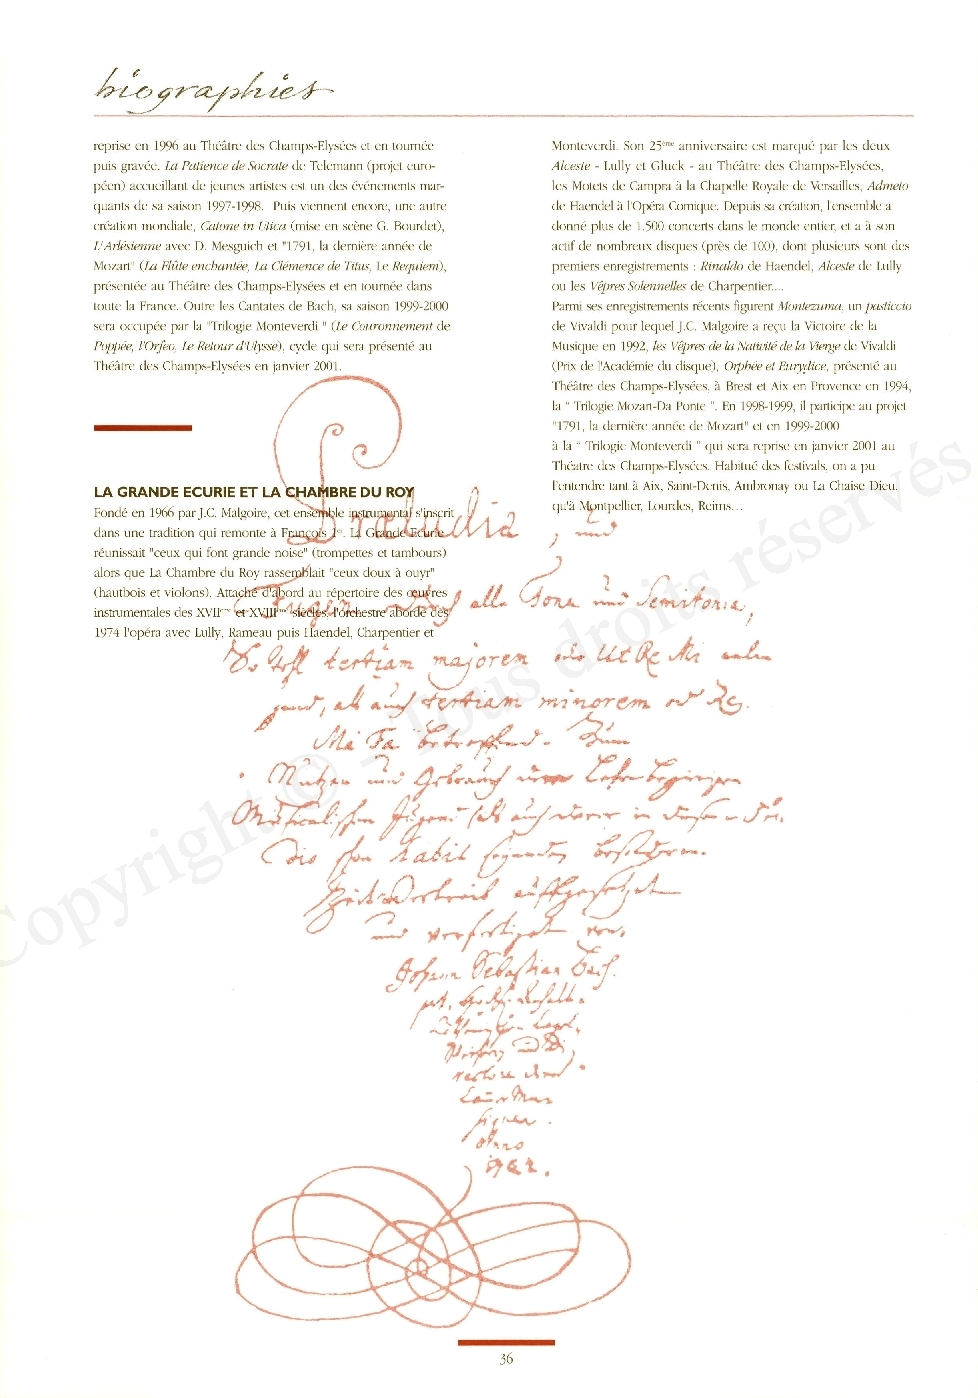 biographies
reprise en 1996 au Théâtre des Champs-Elysées et en tournée
puis gravée. La Patience de Socrate de Telemann (projet euro-
péen) accueillant de jeunes artistes est un des événements mar-
quants de sa saison 1997-1998. Puis viennent encore, une autre
création mondiale, Catone in Utica (mise en scène G. Bourdet),
L'Arlésienne avec D. Mesguich et "1791, la dernière année de
Mozart" (La Flûte enchantée, La Clémence de Titus, Le Requiem),
présentée au Théâtre des Champs-Elysées et en tournée dans
toute la France. Outre les Cantates de Bach, sa saison 1999-2000
sera occupée par la "Trilogie Monteverdi " (Le Couronnement de
Poppée, l'Orfeo, Le Retour d'Ulysse), cycle qui sera présenté au
Théâtre des Champs-Elysées en janvier 2001.
LA GRANDE ECURIE ET LA CHAMBRE DU ROY
Fondé en 1966 par J.C. Malgoire, cet ensemble instrumental s'inscrit
dans une tradition qui remonte à François 1er. La Grande Ecurie
réunissait "ceux qui font grande noise" (trompettes et tambours)
alors que La Chambre du Roy rassemblait "ceux doux à ouyr"
(hautbois et violons). Attaché d'abord au répertoire des œuvres
instrumentales des XVIIème et XVIIIème siècles, l'orchestre aborde dès
1974 l'opéra avec Lully, Rameau puis Haendel, Charpentier et
Monteverdi. Son 25ème anniversaire est marqué par les deux
Alceste - Lully et Gluck - au Théâtre des Champs-Elysées,
les Motets de Campra à la Chapelle Royale de Versailles, Admeto
de Haendel à l'Opéra Comique. Depuis sa création, l'ensemble a
donné plus de 1.500 concerts dans le monde entier, et a à son
actif de nombreux disques (près de 100), dont plusieurs sont des
premiers enregistrements : Rinaldo de Haendel, Alceste de Lully
ou les Vêpres Solennelles de Charpentier....
Parmi ses enregistrements récents figurent Montezuma, un pasticcio
de Vivaldi pour lequel J.C. Malgoire a reçu la Victoire de la
Musique en 1992, les Vêpres de la Nativité de la Vierge de Vivaldi
(Prix de l'Académie du disque), Orphée et Eurydice, présenté au
Théâtre des Champs-Elysées, à Brest et Aix en Provence en 1994,
la " Trilogie Mozart-Da Ponte ". En 1998-1999, il participe au projet
"1791, la dernière année de Mozart" et en 1999-2000
à la " Trilogie Monteverdi " qui sera reprise en janvier 2001 au
Théâtre des Champs-Elysées. Habitué des festivals, on a pu
l'entendre tant à Aix, Saint-Denis, Ambronay ou La Chaise Dieu,
qu'à Montpellier, Lourdes, Reims…
Praeludia, und
Fugen durch alle Tone und Semitonia,
tertiam majorem oder Ut Re Mi
als auch tertiam minorem oder Re
Mi Fa betreffend. Zum
Nutzen und Gebrauch der Lehrbegierigen
Musicalischen Jugend als auch derer in diesem
habil seyenden besonderen
Zeitvertreib auffgesetzet
und verfertiget von
Johann Sebastian Bach.
Anno
1722.
36
Copyright © - Tous droits réservés